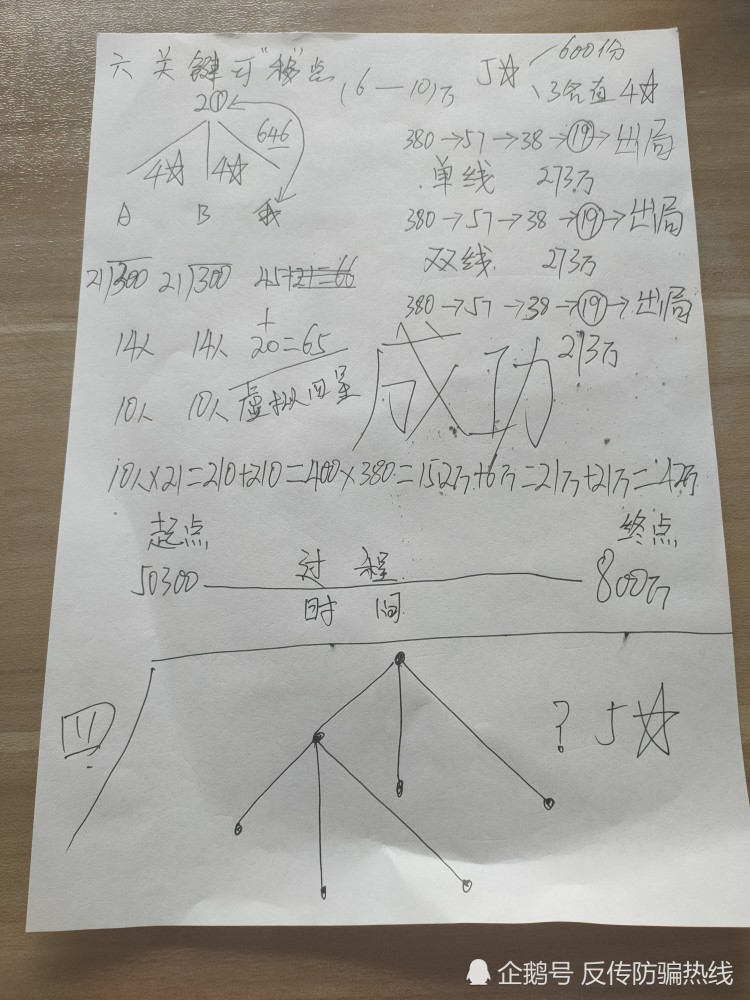 六 关 键 可"秘"点 (6—10)万 5☆ 600份
3名直 4☆
2① 646
4☆ 4☆
A B 我
380→57→38→⑲→出局
单线 273万
380→57→38→⑲→出局
双线 273万
380→57→38→⑲→出局
273万
21 300 21 300 45+21=66
14人 14人 +20=65
10人 10人 虚拟
成功
10人×21=210+210=400×380=152万+6万=21万+21万=42万
起点 终点
50300 过 程 800万
时 间
四 ? 5☆
企鹅号 反传防骗热线